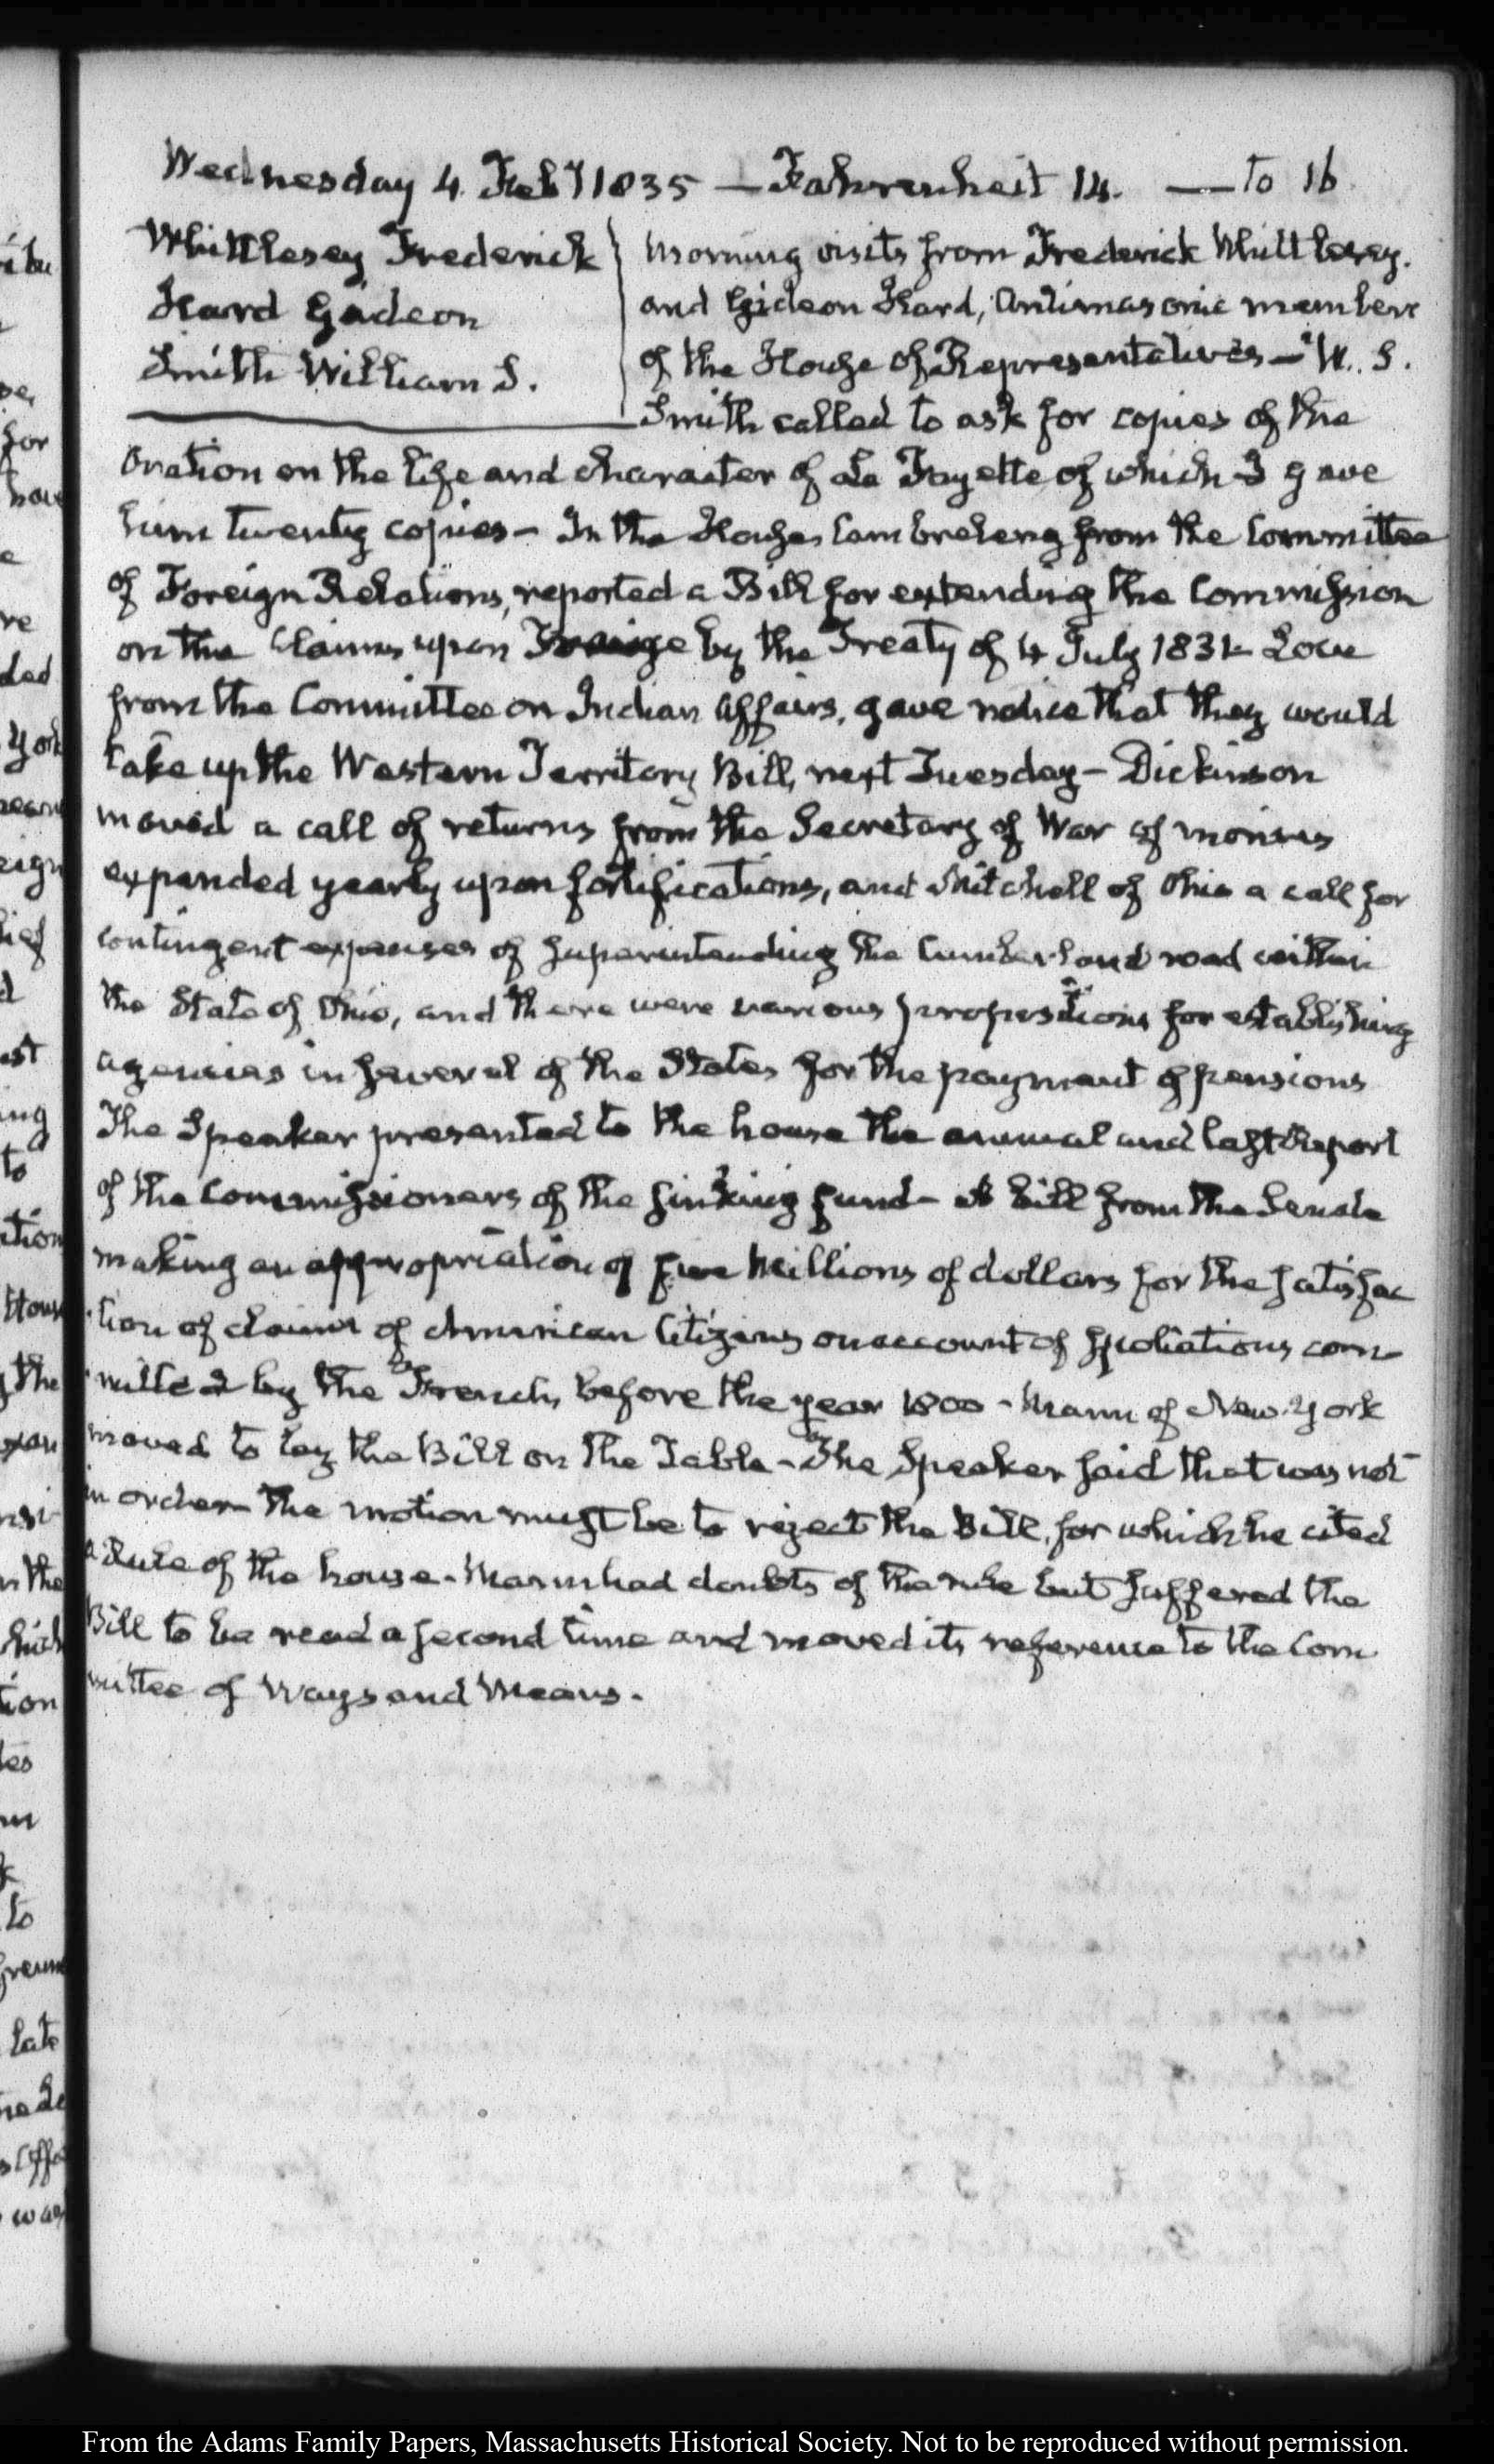 Wednesday 4. Feby 1835 — Fahrenheit 14. — To 16
Whittlesey Frederick
Hard Gideon
Smith William S.
Morning visits from Frederick Whittlesey.
and Gideon Hard, Antimasonic members
of the House of Representatives — W. S.
Smith called to ask for copies of the
Oration on the life and character of La Fayette of which I gave
him twenty copies – In the House, Cambreleng from the Committee
of Foreign Relations, reported a Bill for extending the Commission
on the Claims upon France by the Treaty of 4 July 1831– Love
from the Committee on Indian Affairs, gave notice that they would
take up the Western Territory Bill, next Tuesday – Dickinson
moved a call of returns from the Secretary of War of monies
expended yearly upon fortifications, and Mitchell of Ohio a call for
contingent expenses of superintending the Cumberland road within
the State of Ohio, and there were various propositions for establishing
agencies in several of the States for the payment of pensions
The Speaker presented to the house the annual and last Report
of the Commissioners of the sinking fund – A bill from the Senate
making an appropriation of five Millions of dollars for the satisfac
tion of claims of American Citizens on account of spoliations com-
mitted by the French, before the year 1800 – Mann of New-York
moved to lay the Bill on the Table – The Speaker said that was not
in order – The motion must be to reject the Bill, for which he cited
a Rule of the house – Mann had doubts of the rule but suffered the
Bill to be read a second time and moved its reference to the Com
mittee of Ways and Means.
From the Adams Family Papers, Massachusetts Historical Society. Not to be reproduced without permission.